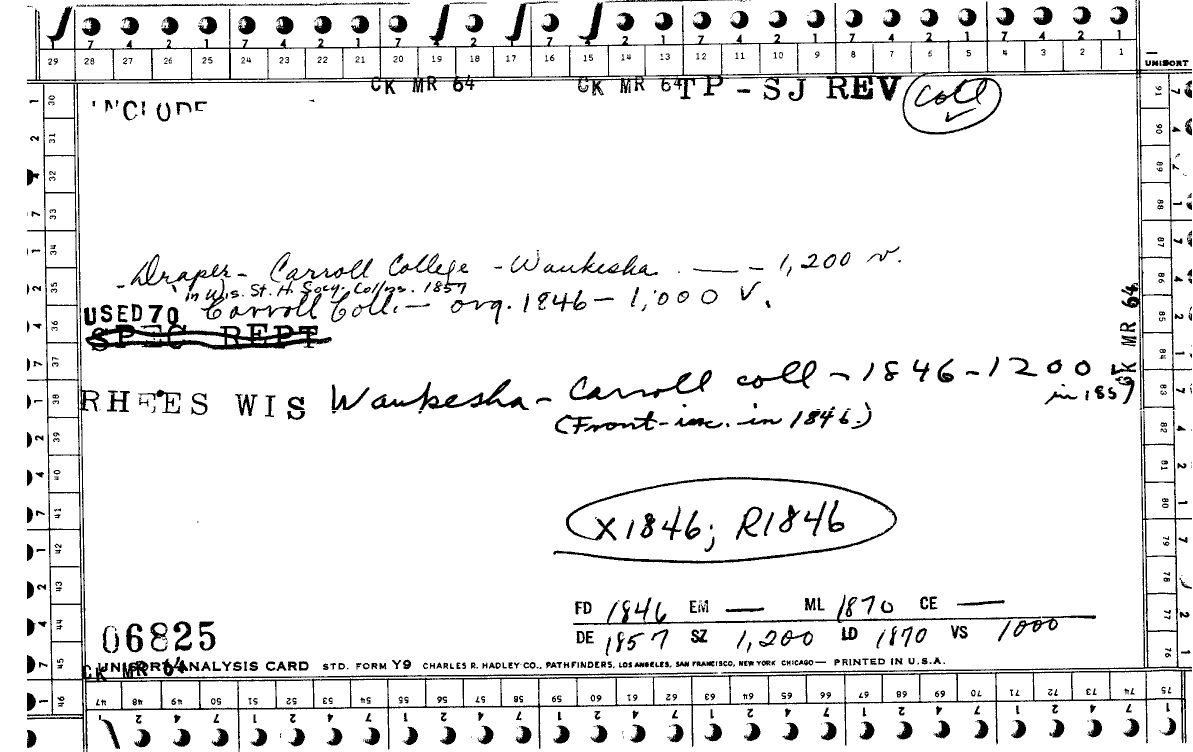 29 28 27 26 25 24 23 22 21 20 19 18 17 16 15 14 13 12 11 10 9 8 7 6 5 4 3 2 1
UNISORT
CK MR 64 CK MR 64 TP - SJ REV coll
INCLUDE
Draper - Carroll College - Waukesha. — - 1,200 v.
in Wis. St. H. Socy. Collns. 1857
USED 70 Carroll Coll. - org. 1846 - 1,000 V.
SPEC REPT
CK MR 64
RHEES WIS Waukesha - Carroll coll - 1846 - 1200
in 1857
(Front-inc. in 1846.)
X1846; R1846
FD 1846 EM — ML 1870 CE —
DE 1857 SZ 1,200 LD 1870 VS 1000
06825
CK MR 64
UNISORT ANALYSIS CARD STD. FORM Y9 CHARLES R. HADLEY CO., PATHFINDERS, LOS ANGELES, SAN FRANCISCO, NEW YORK CHICAGO — PRINTED IN U.S.A.
47 48 49 50 51 52 53 54 55 56 57 58 59 60 61 62 63 64 65 66 67 68 69 70 71 72 73 74 75